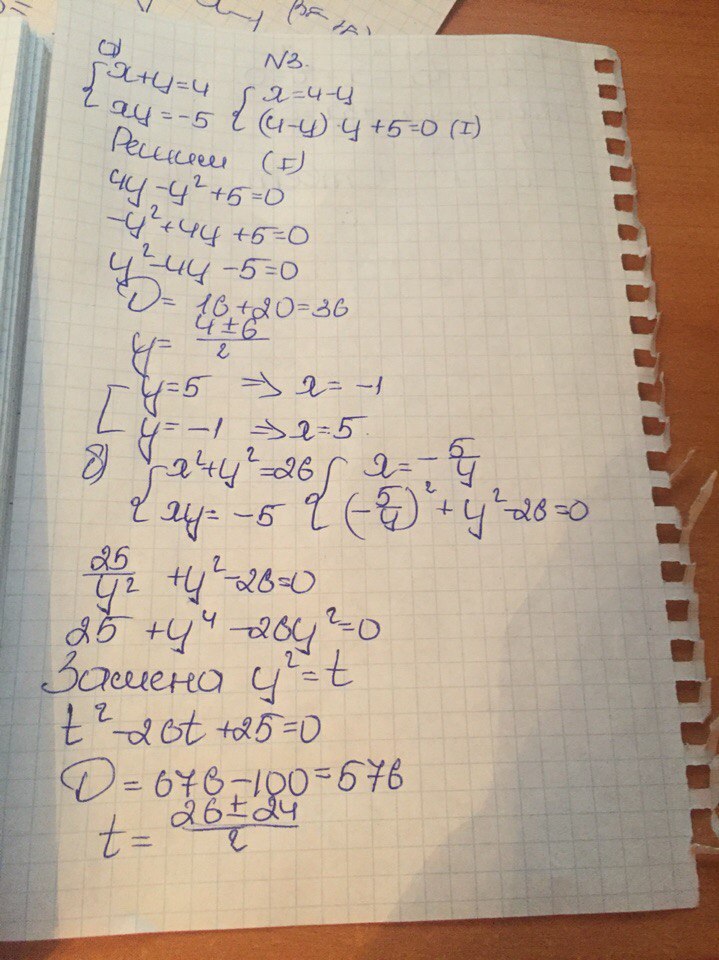 N3.
а)
{ x+y=4 { x=4-y
xy=-5 (4-y)·y+5=0 (I)
Решим (I)
4y-y²+5=0
-y²+4y+5=0
y²-4y-5=0
D= 16+20=36
y= (4±6)/2
[ y=5 => x=-1
y=-1 => x=5.
б) { x²+y²=26 { x=-5/y
xy=-5 (-5/y)²+y²-26=0
25/y² +y²-26=0
25+y⁴-26y²=0
Замена y²=t
t²-26t+25=0
D=676-100=576
t= (26±24)/2